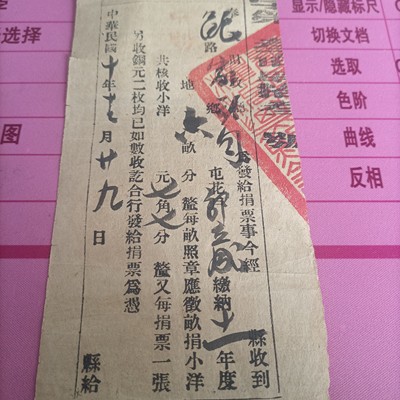 為發給捐票事今經 縣收到
路 鄉 屯花戶 繳納十一年度
地六畝 分 釐每畝照章應徵畝捐小洋
共核收小洋 元七角七分 釐又每捐票一張
另收銅元二枚均已如數收訖合行發給捐票為憑
中華民國十年十二月廿九日 縣給
选择
图
显示/隐藏标尺
切换文档
选取
色阶
曲线
反相